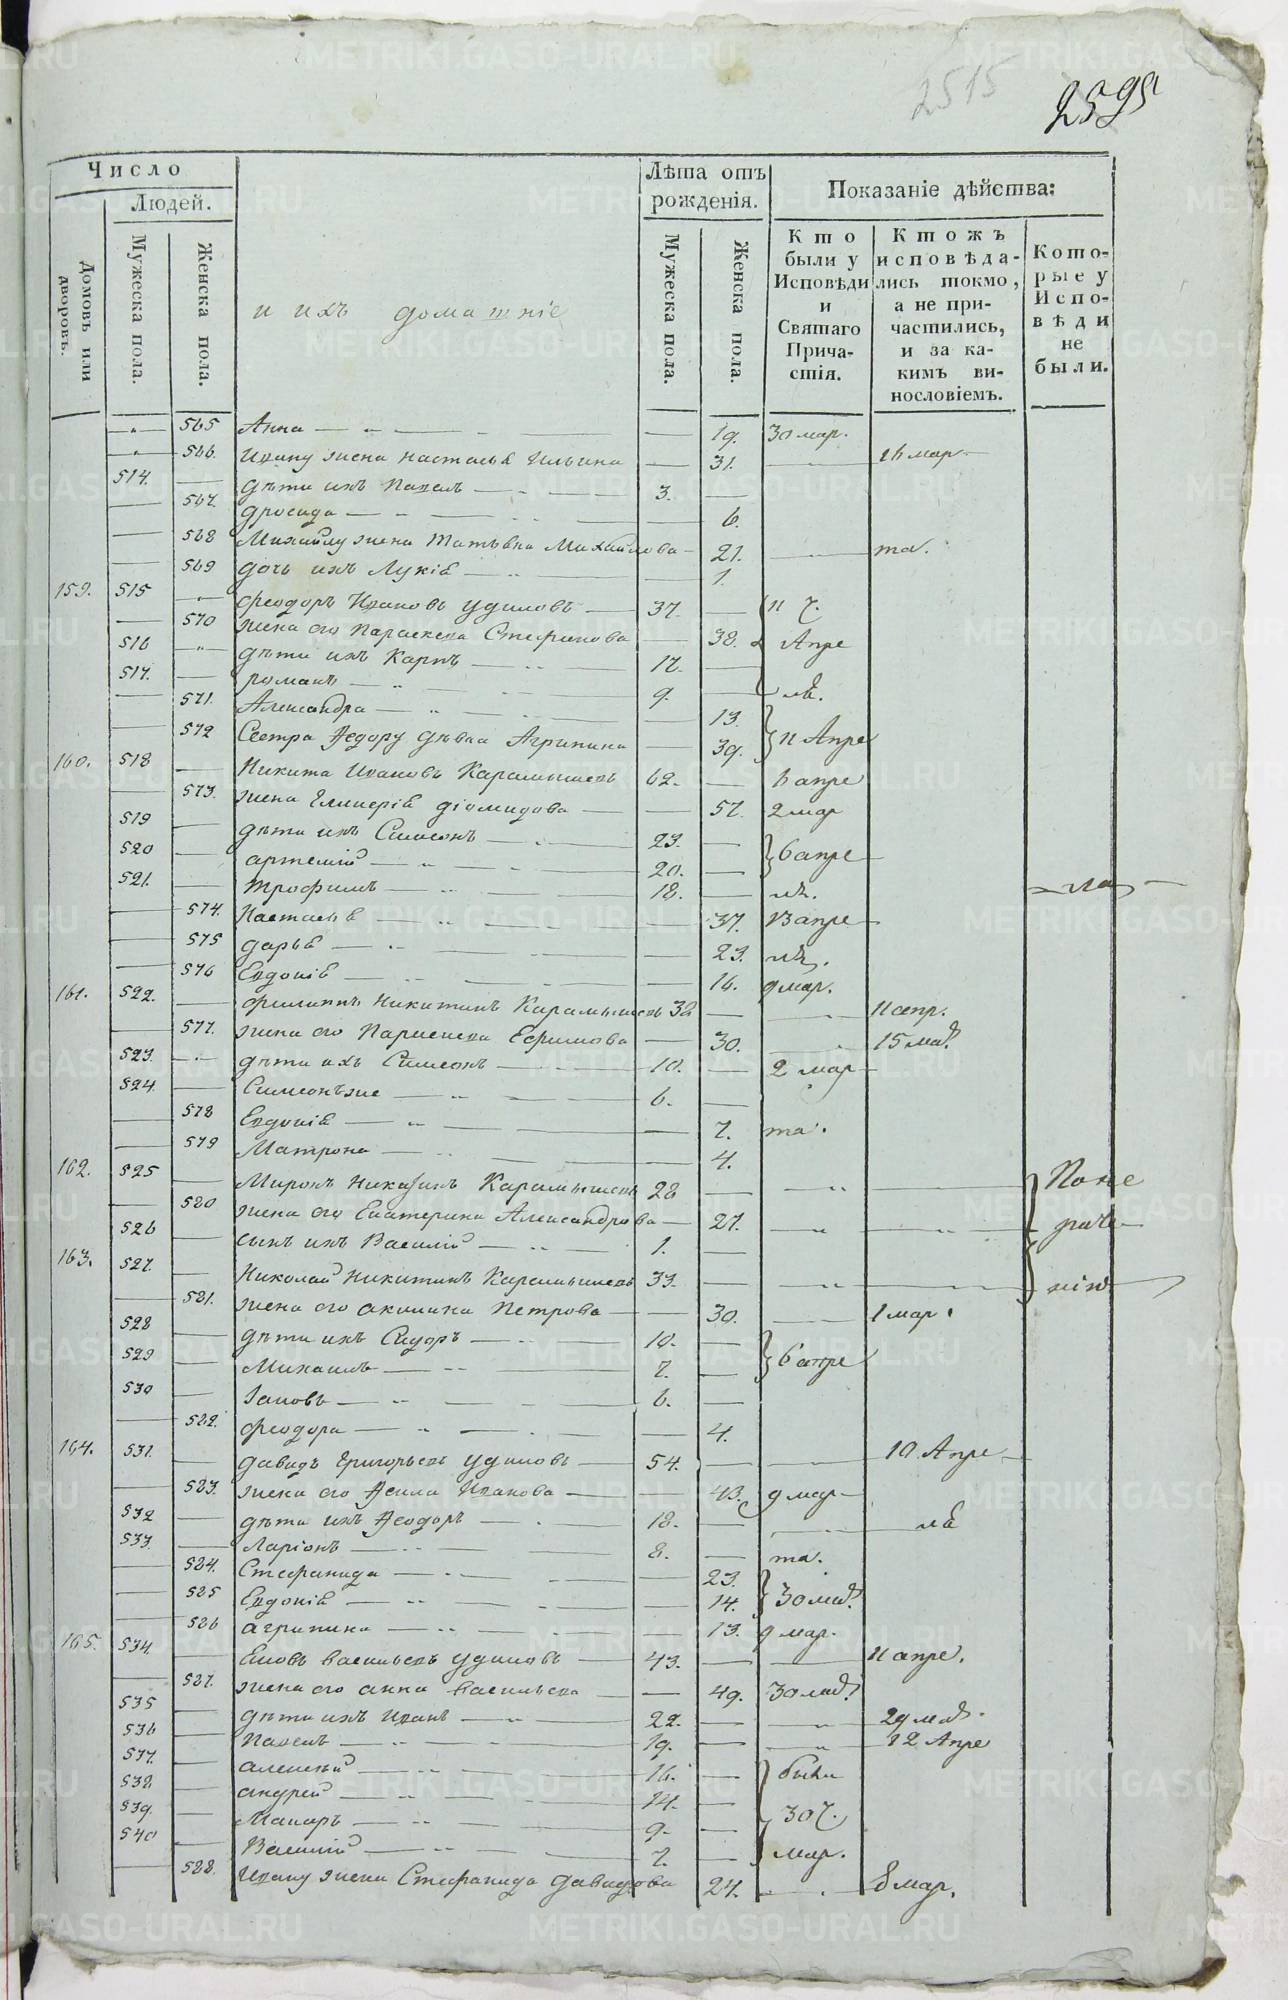 2515
2595
Число
Людей.
Домовъ или дворовъ.
Мужеска пола.
Женска пола.
и ихъ домашніе
Лѣта отъ рожденія.
Мужеска пола.
Женска пола.
Показаніе дѣйства:
Кто были у Исповѣди и Святаго Причастія.
Ктожъ исповѣдались токмо, а не причастились, и за какимъ винословіемъ.
Которые у Исповѣди не были.
565 Анна 19. 30 мар.
566. Ивану жена Настасья Ильина 31. 16 мар.
514. дѣти ихъ Павелъ 3.
567. дросида 6.
568 Михайлу жена Татьяна Михайлова 21. та.
569 дочь ихъ Лукія 1.
159. 515 Феодоръ Ивановъ Удиловъ 37. 11 ч.
570 жена его Параскева Стефанова 38. Апре
516 дѣти ихъ Карпъ 12.
517. романъ 9. ля.
571. Александра 13.
572 Сестра Ѳедору дѣвка Агрипина 39. 11 Апре
160. 518 Никита Ивановъ Карамышевъ 62. 6 апре
573. жена Гликерія діомидова 57. 2 мар
519 дѣти ихъ Симеонъ 23.
520 артемій 20. 6 апре
521. трофимъ 18. ля.
574. Настасья 37. 13 апре
575 дарья 23. ля.
576 Евдокія 16. 9 мар.
161. 522. филиппъ Никитинъ Карамышевъ 38 11 апр.
577. жена его Параскева Ефимова 30. 15 мар.
523. дѣти ихъ Симеонъ 10. 2 мар
524. Симеонъже 6.
578 Евдокія 7. та.
579 Матрона 4.
162. 525 Миронъ Никитинъ Карамышевъ 28 По не
580 жена его Екатерина Александрова 27. раче
526 сынъ ихъ Василій 1.
163. 527. Николай Никитинъ Карамышевъ 33. нію
581. жена его акилина Петрова 30. 1 мар.
528 дѣти ихъ Сидоръ 10.
529 Михаилъ 7. 6 апре
530 Іаковъ 6.
582. феодора 4.
164. 531. давидъ Григорьевъ Удиловъ 54. 10 Апре
583. жена его Ѳекла Иванова 43. 9 мар
532 дѣти ихъ Ѳеодоръ 18. ля
533. Ларіонъ 8. та.
584. Стефанида 23.
585 Евдокія 14. 30 мар.
586 агрипина 13. 9 мар.
165. 534. Іаковъ васильевъ Удиловъ 43. 11 апре.
587. жена его анна васильева 49. 30 мар.
535 дѣти ихъ Иванъ 22. 29 мар.
536 Павелъ 19. 12 Апре
537. алексѣй 16. были
538. андрей 14.
539. Макаръ 9. 30 ч.
540 Василій 7. мар.
588. Ивану жена Стефанида давидова 24. 8 мар.
METRIKI.GASO-URAL.RU